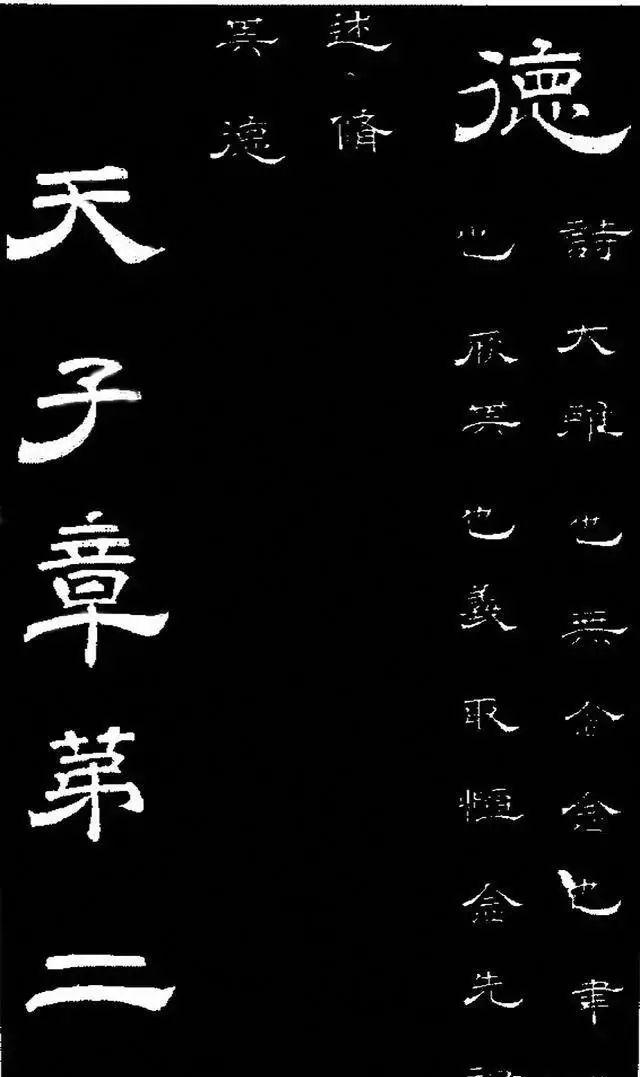 德
詩大雅也無念念也聿
也厥其也義取恒念先
述脩
其德
天子章苐二